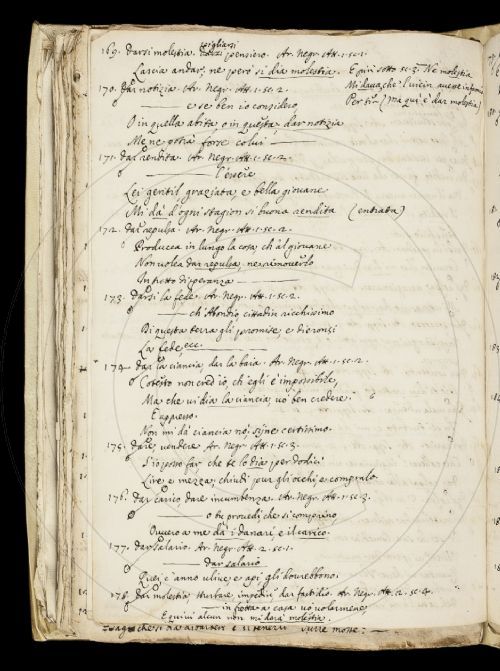 pigliarsi
169. Darsi molestia. Darsi pensiero. Ar. Negr. Att. 1. sc. 1.
Lascia andar, ne però si dia molestia. E quivi sotto sc. 3. Ne molestia
170. Dar notizia. Ar. Negr. Att. 1. sc. 2. Mi dava, che i vicin
e se ben io considero Per (Ma qui è dar molestia)
O in quella abita, o in questa dar notizia
Me ne potrà forse colui
171. Dar rendita. Ar. Negr. Att. 1. sc. 2.
l'essere
Lei gentil, graziata, e bella giovane
Mi dà d'ogni stagion sì buona rendita (entrata)
172. Dar repulsa. Ar. Negr. Att. 1. sc. 2.
Producea in lungo la cosa, ch'al giovane
Non volea dar repulsa, ne rimoverlo
In tutto di speranza
173. Darsi la fede. Ar. Negr. Att. 1. sc. 2.
ch'Abondio, cittadin ricchissimo
Di questa terra gli promise, e dieronsi
La fede, ecc.
174. Dar la ciancia, dar la baia. Ar. Negr. Att. 1. sc. 2.
Cotesto non cred'io, ch'egli è impossibile,
Ma che vi dia la ciancia, vo' ben credere.
E appresso.
Non mi dà ciancia no, sonne certissimo.
175. Dare, vendere. Ar. Negr. Att. 1. sc. 3.
S'io posso far che te lo dia per dodici
Lire e mezza, chiudi pur gli occhi, e compralo.
176. Dar carico dare incumbenza. Ar. Negr. Att. 1. sc. 3.
o tu provedi, che si comprino
Ovvero a me dà i danari, e il carico.
177. Dar salario. Ar. Negr. Att. 2. sc. 1.
Dar salario
Quei c'anno ulive, e api gli dovrebbono.
178. Dar molestia, sturbare, impedir, dar fastidio. Ar. Negr. Att. 2. sc. 4.
in fretta a casa vo volarmene,
E quivi alcun non mi darà molestia.